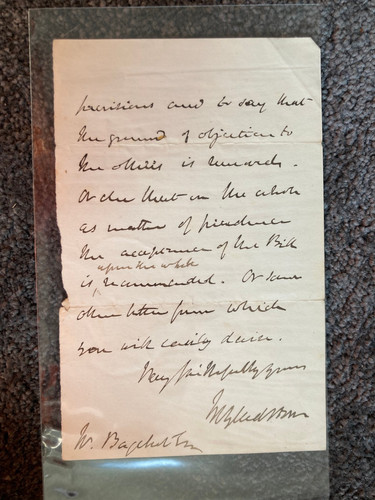 provisions and to say that
the ground of objection to
the Mills is
Or else that on the whole
as matter of prudence
the acceptance of the Bill
upon the whole
is recommended. Or some
other letter from which
you will easily devise.
Very faithfully yours
W E Gladstone
W. Bagehot Esq